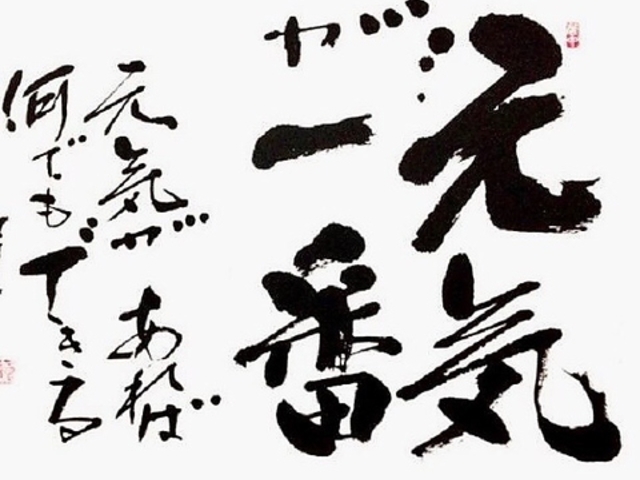 元気
が一番
元気が あれば
何でもできる